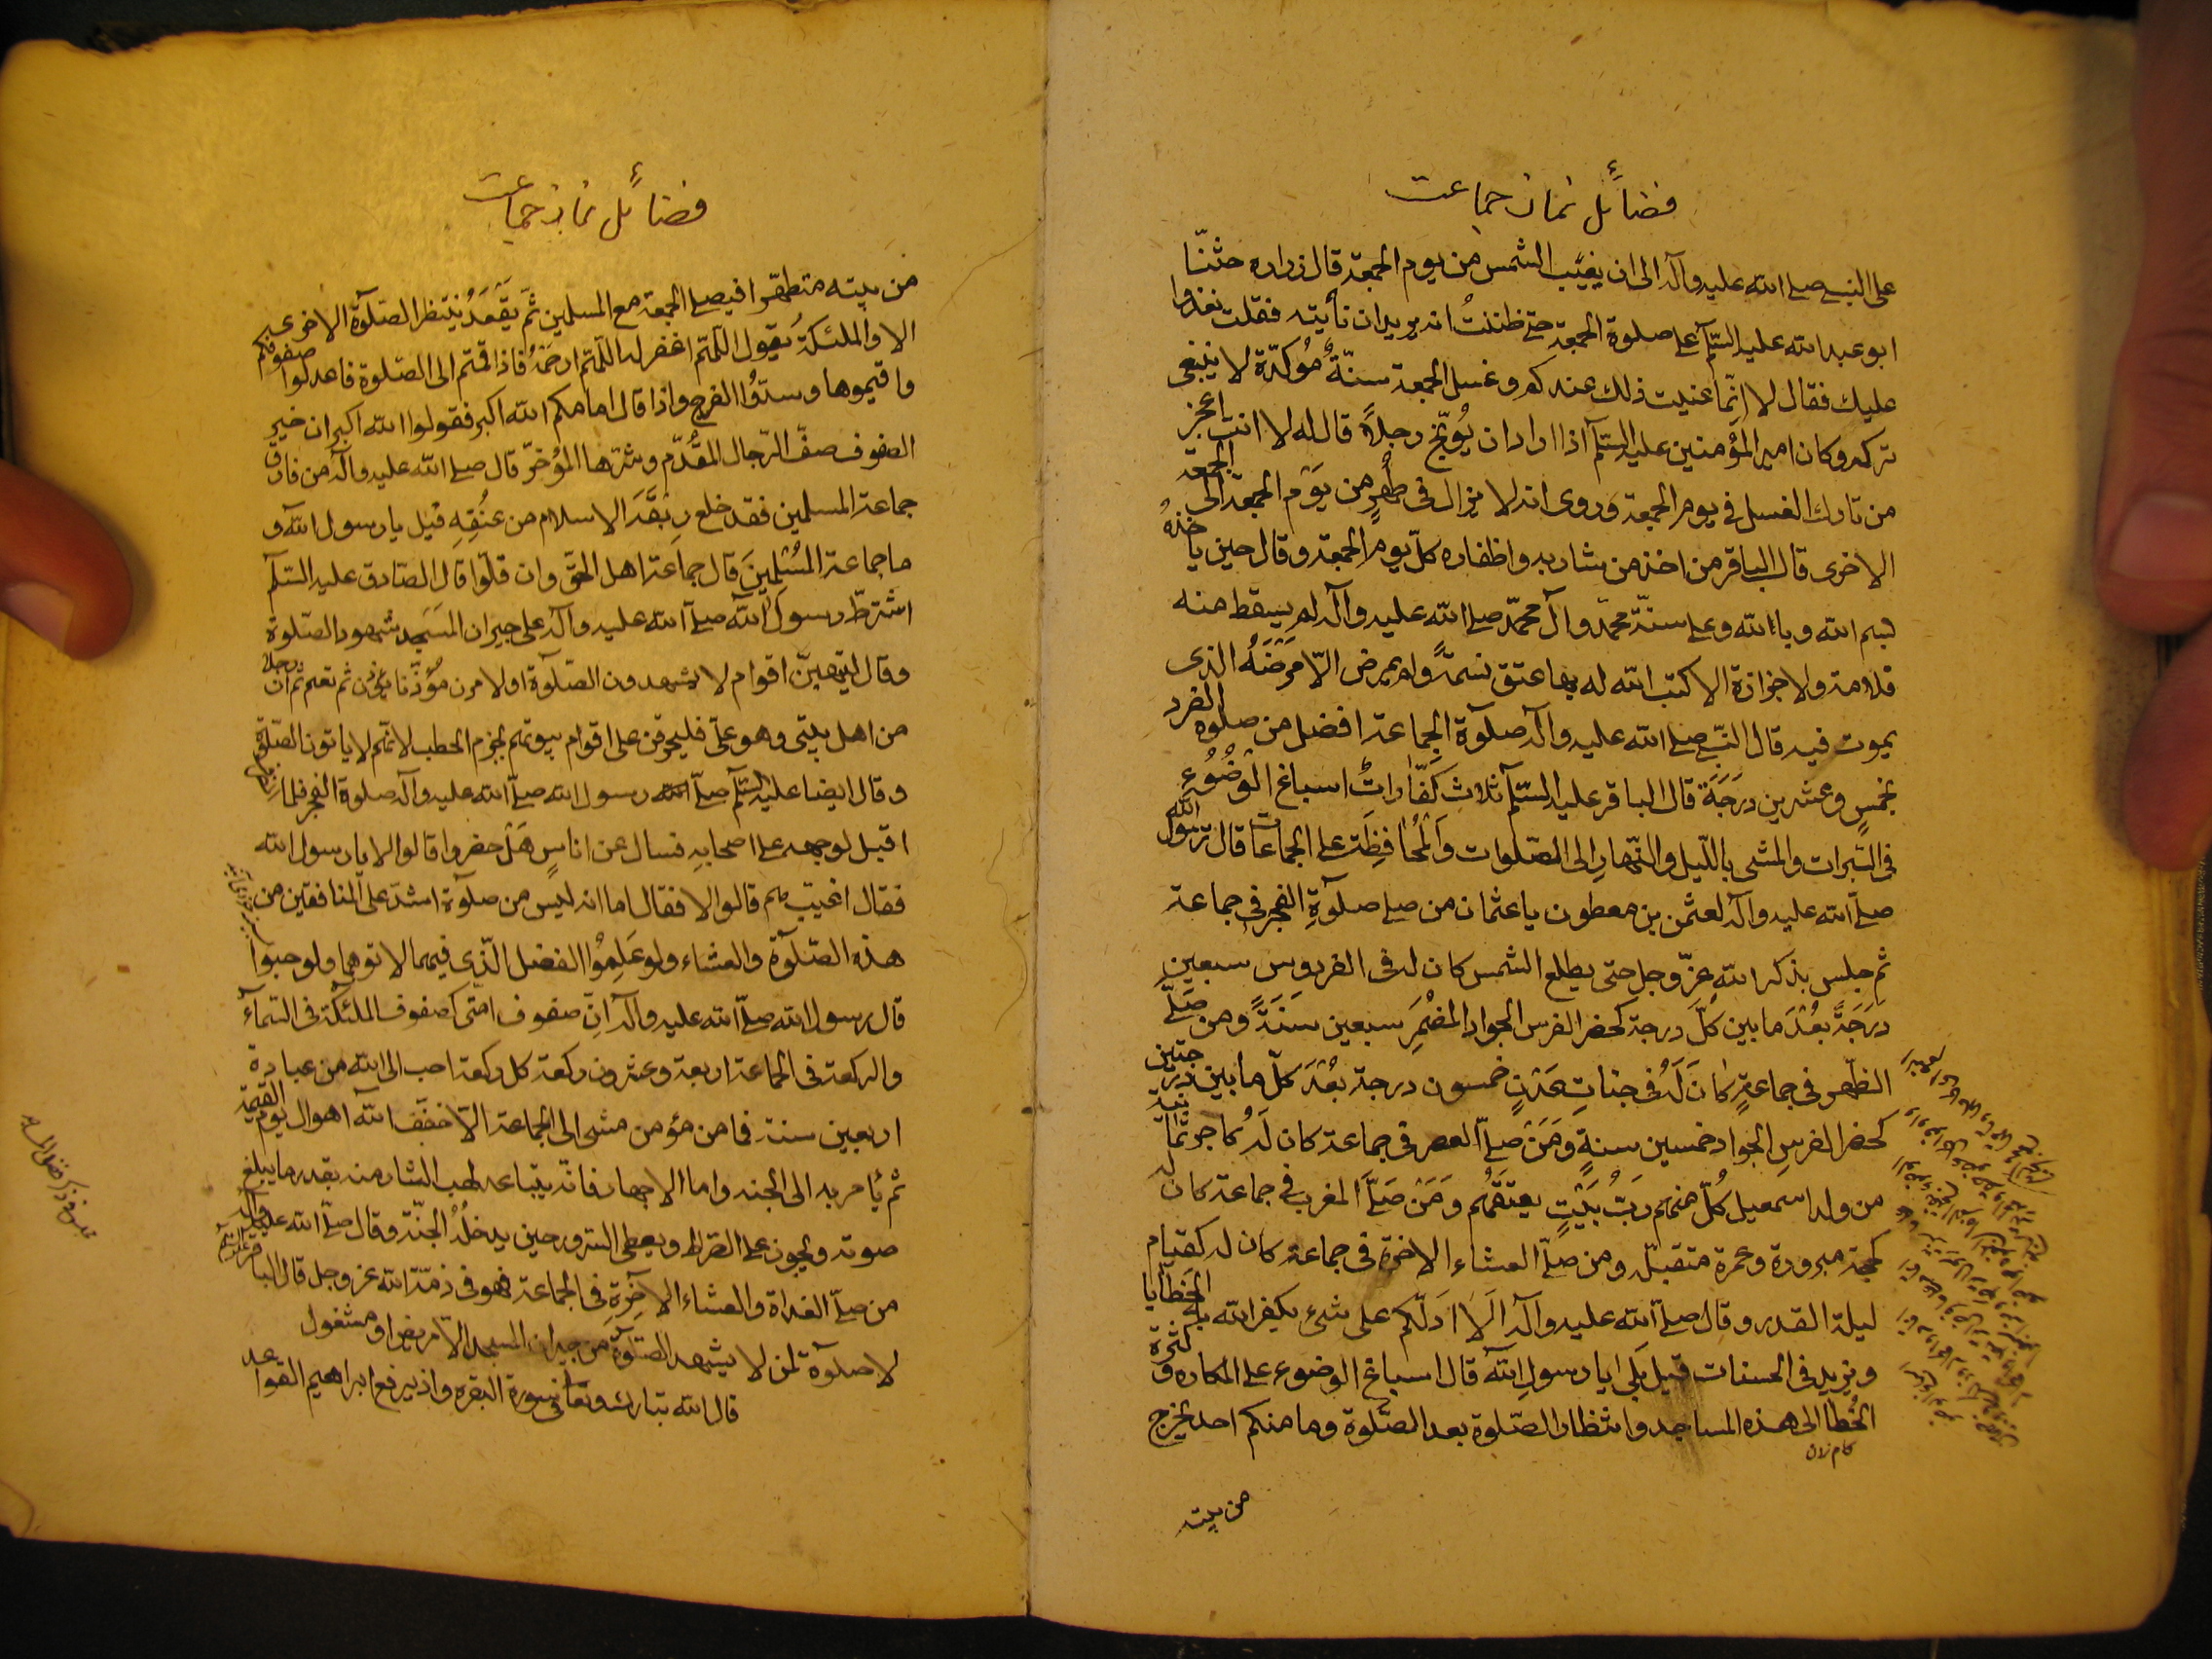 فضائل نماز جماعت
على النبى صلى الله عليه وآله الى ان يغيب الشمس من يوم الجمعة قال زراره حثنا
ابو عبد الله عليه السلم على صلوة الجمعة حتى ظننت انه يريد ان نأتيه فقلت نغدوا
عليك فقال لا انما عنيت ذلك عندكم وغسل الجمعة سنة مؤكدة لا ينبغى
تركه وكان امير المؤمنين عليه السلم اذا اراد ان يوبخ رجلا قال له لا انت اعجز
من تارك الغسل فى يوم الجمعة وروى انه لا يزال فى طهر من يوم الجمعة الى الجمعة
الاخرى قال الباقر من اخذ من شاربه واظفاره كل يوم الجمعة وقال حين يأخذه
بسم الله وبالله وعلى سنة محمد وآل محمد صلى الله عليه وآله لم يسقط منه
قلامة ولا جزازة الا كتب الله له بها عتق نسمة ولم يمرض الا مرضه الذى
يموت فيه قال النبى صلى الله عليه وآله صلوة الجماعة افضل من صلوة الفرد
بخمس وعشرين درجة قال الباقر عليه السلم ثلاث كفارات اسباغ الوضوء
فى السبرات والمشى بالليل والنهار الى الصلوات والمحافظة على الجماعات قال رسول الله
صلى الله عليه وآله لعثمن بن معطون يا عثمان من صلى صلوة الفجر فى جماعة
ثم جلس بذكر الله عز وجل حتى يطلع الشمس كان له فى الفردوس سبعين
درجة بعد ما بين كل درجة كحضر الفرس الجواد المضمر سبعين سنة ومن صلى
الظهر فى جماعة كان له فى جنات عدن خمسون درجة بعد كل ما بين درجتين
كحضر الفرس الجواد خمسين سنة ومن صلى العصر فى جماعة كان له كاجر ثمانية
من ولد اسمعيل كل منهم رب بيت يعتقهم ومن صلى المغرب فى جماعة كان له
كحجة مبرورة وعمرة متقبلة ومن صلى العشاء الاخرة فى جماعة كان له كقيام
ليلة القدر وقال صلى الله عليه وآله الا ادلكم على شئ يكفر الله به الخطايا
ويزيد فى الحسنات قيل بلى يا رسول الله قال اسباغ الوضوء على المكاره وكثرة
الخطا الى هذه المساجد وانتظار الصلوة بعد الصلوة وما منكم احد يخرج
من بيته
فضائل نماز جماعت
من بيته متطهرا فيصلى الجمعة مع المسلمين ثم يقعد ينتظر الصلوة الاخرى
الا والملئكة يقول اللهم اغفر له اللهم ارحمه فاذا قمتم الى الصلوة فاعدلوا صفوفكم
واقيموها وسدوا الفرج واذا قال امامكم الله اكبر فقولوا الله اكبر ان خير
الصفوف صف الرجال المقدم وشرها المؤخر قال صلى الله عليه وآله من فارق
جماعة المسلمين فقد خلع ربقة الاسلام من عنقه قيل يا رسول الله و
ما جماعة المسلمين قال جماعة اهل الحق وان قلوا قال الصادق عليه السلم
اشترط رسول الله صلى الله عليه وآله على جيران المسجد شهود الصلوة
وقال لينتهين اقوام لا يشهدون الصلوة او لامرن مؤذنا يؤذن ثم يقيم ثم آمر رجلا
من اهل بيتى وهو على فليحرقن على اقوام بيوتهم بحزم الحطب لانهم لا ياتون الصلوة
وقال ايضا عليه السلم صلى رسول الله صلى الله عليه وآله صلوة الفجر فلما انصرف
اقبل لوجهه على اصحابه فسال عن اناس هل حضروا قالوا لا يا رسول الله
فقال اغيب هم قالوا لا فقال اما انه ليس من صلوة اشد على المنافقين من
هذه الصلوة والعشاء ولو علموا الفضل الذى فيهما لاتوهما ولو حبوا
قال رسول الله صلى الله عليه وآله ان صفوف امتى كصفوف الملئكة فى السماء
والركعة فى الجماعة اربعة وعشرون ركعة كل ركعة احب الى الله من عبادة
اربعين سنة فما من مؤمن مشى الى الجماعة الا خفف الله اهوال يوم القيمة
ثم يأمر به الى الجنة واما الاجهار فانه يتباعد لهب النار منه بقدر ما يبلغ
صوته ويجوز على الصراط ويعطى السرور حين يدخل الجنة وقال صلى الله عليه وآله
من صلى الغداة والعشاء الاخرة فى الجماعة فهو فى ذمة الله عز وجل قال الباقر
لا صلوة لمن لا يشهد الصلوة من جيران المسجد الا مريض او مشغول
قال الله تبارك وتعالى فى سورة البقره واذ يرفع ابراهيم القواعد